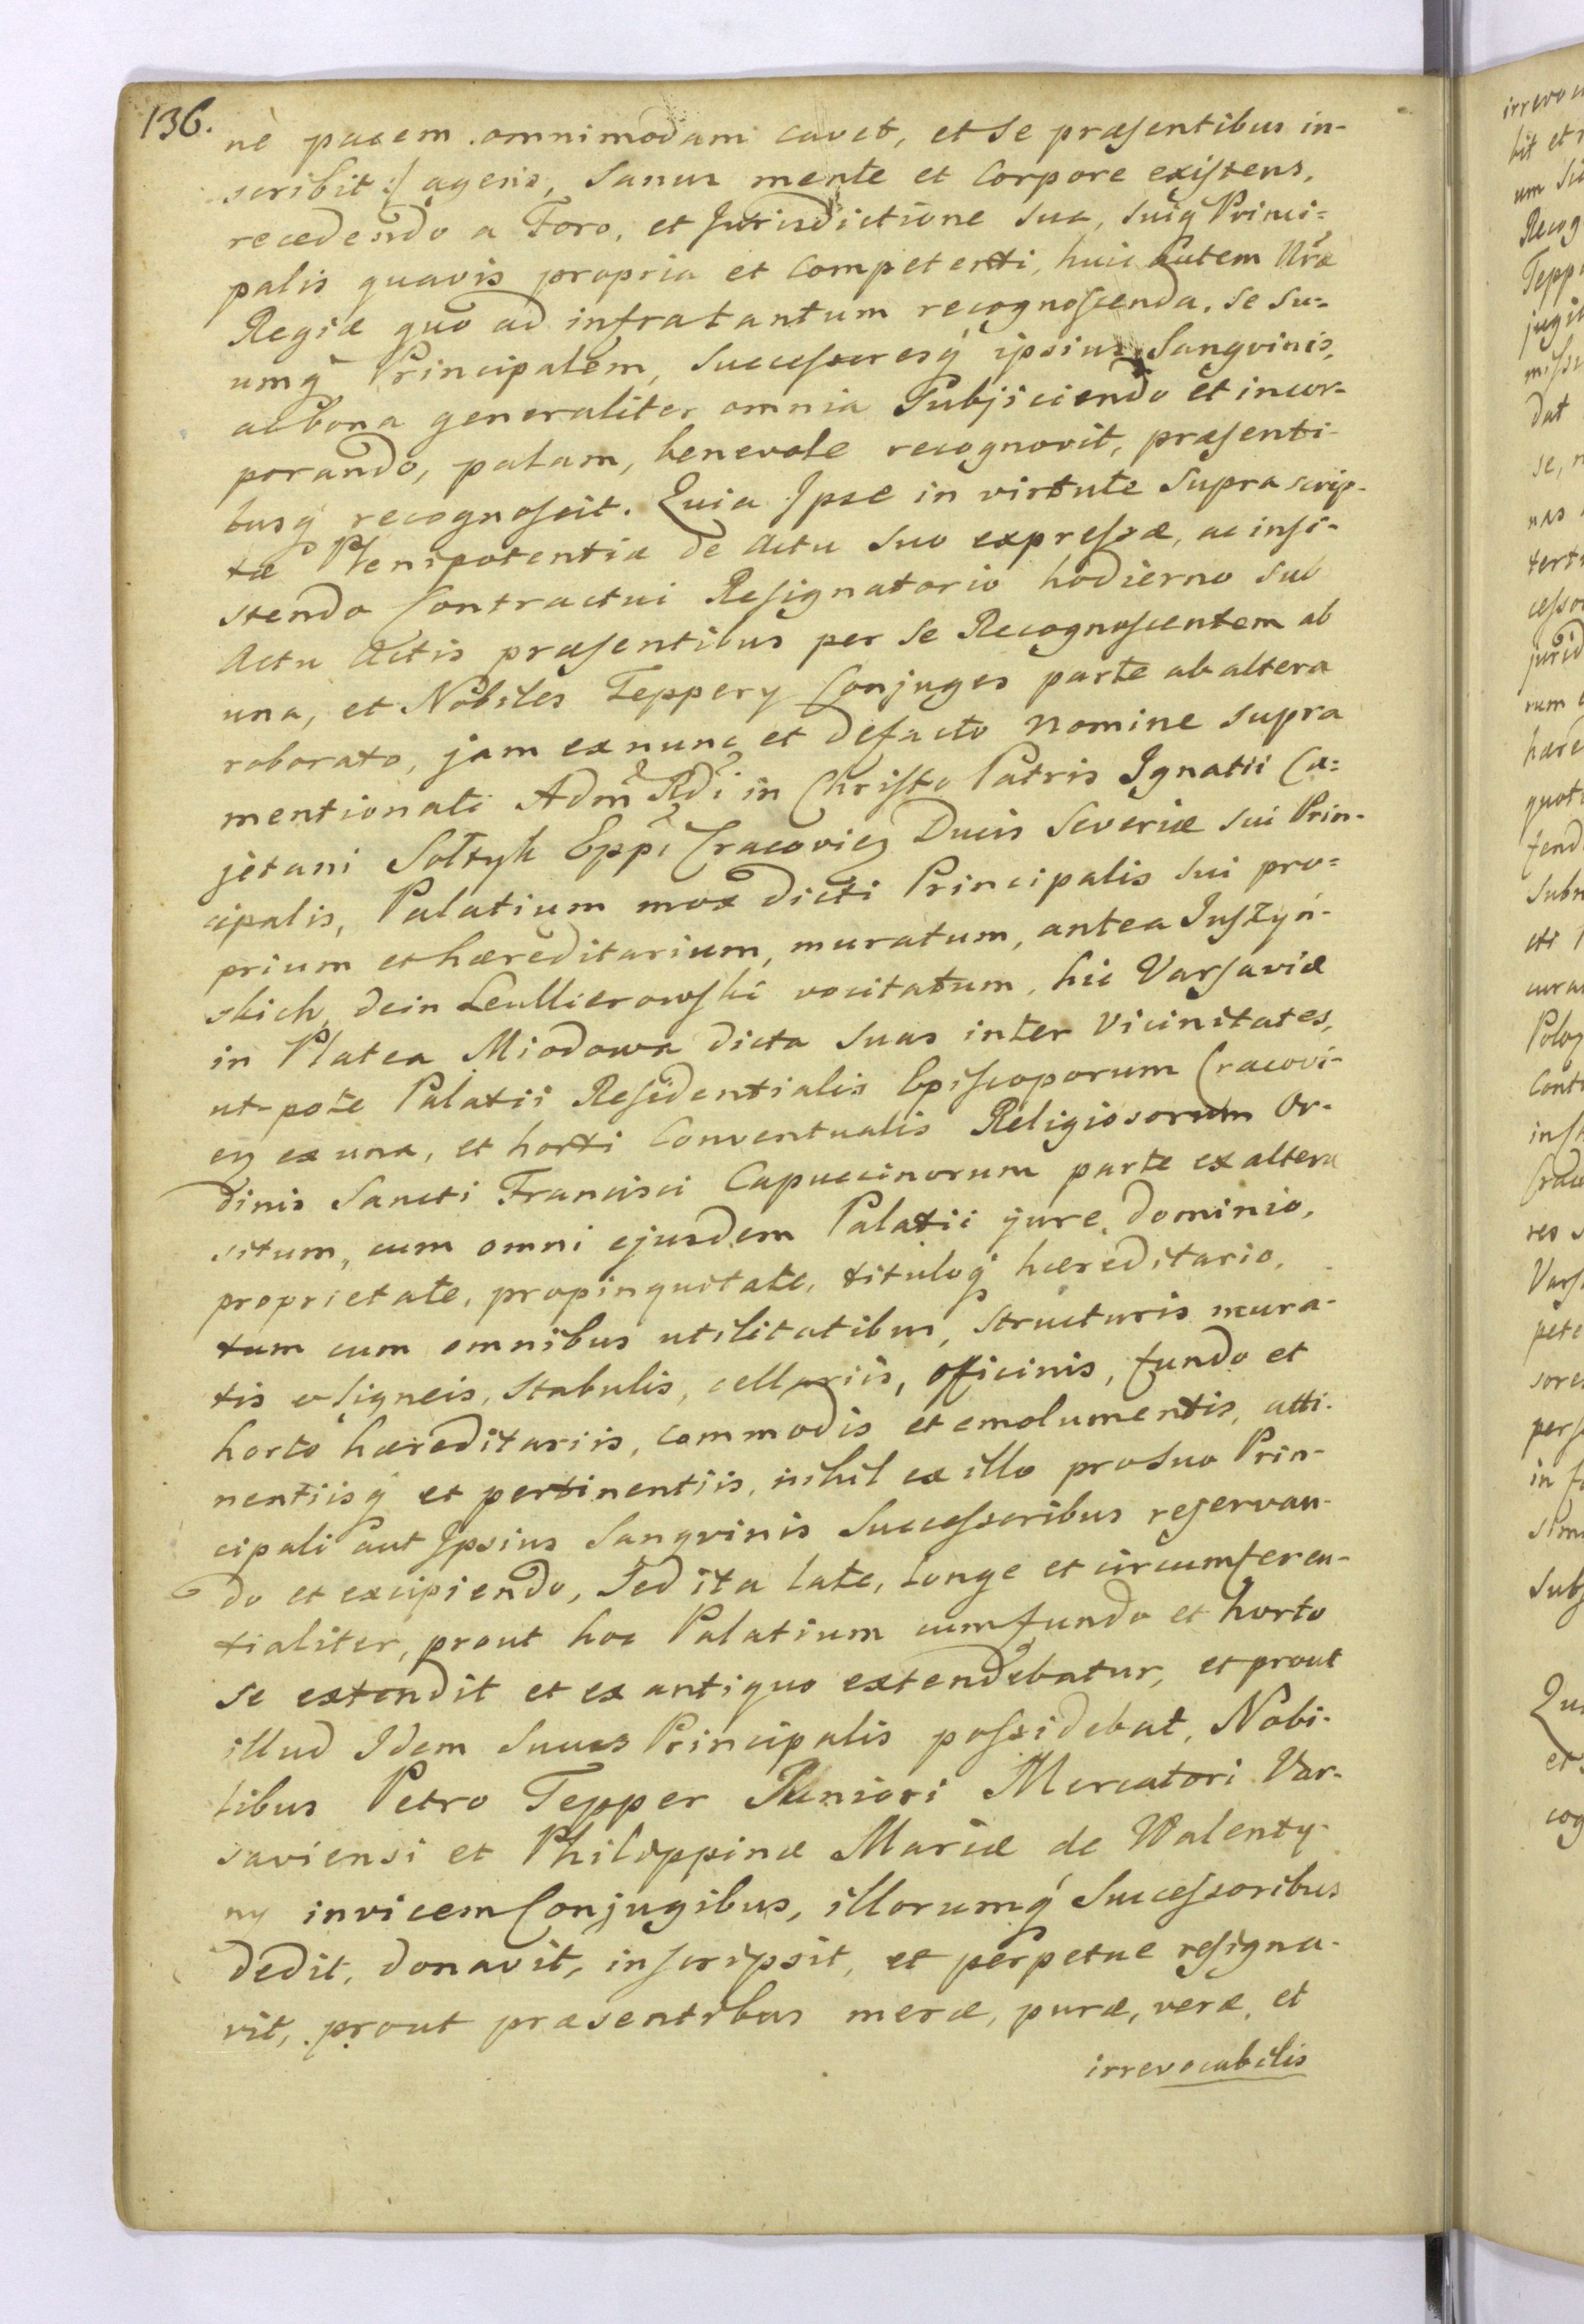 136.
nè pacem omnimodam cavet, et se præsentibus in-
scribit:/ agens, Sanus mente et Corpore existens,
recedendo a Foro, et Jurisdictione sua, suiq Princi=
palis quavis propria et Competenti, huic autem Nræ
Regiæ quo ad infratantum recognoscenda, se su=
umq Principalem, Successoresq ipsius Sangvinis,
ac bona generaliter omnia Subjiciendo et incor-
porando, palam, benevole recognovit, præsenti-
busq recognoscit. Quia Ipse in virtute Supra scrip-
tæ Plenipotentiæ de Actu suo expressæ, ac insi-
stendo Contractui Resignatorio hodierno sub
Actu Actis præsentibus per se Recognoscentem ab
una, et Nobiles Teppery Conjuges parte ab altera
roborato, jam ex nunc et defacto nomine supra
mentionati Adm̃ Rdi in Christo Patris Ignatii Ca=
jetani Sołtyk Eppi Cracovieñ Ducis Severiæ sui Prin-
cipalis, Palatium mox dicti Principalis sui pro=
prium et hæreditarium, muratum, antea Juszyń-
skich, dein Leullierowski vocitatum, hic Varsaviæ
in Platea Miodowa dicta suas inter Vicinitates,
ut-pote Palatii Residentialis Episcoporum Cracovi-
eñ ex una, et horti Conventualis Religiosorum Or-
dinis Sancti Francisci Capuccinorum parte ex altera
situm, cum omni ejusdem Palatii jure, dominio,
proprietate, propinquitate, tituloq hæreditario,
tum cum omnibus utilitatibus, structuris mura-
tis et ligneis, stabulis, cellariis, officinis, fundo et
horto hæreditariis, commodis et emolumentis, atti-
nentiisq et pertinentiis, nihil ex illo pro suo Prin-
cipali aut Ipsius Sangvinis Successoribus reservan-
do et excipiendo, Sed ita late, longe et circumferen-
tialiter, prout hoc Palatium cum fundo et horto
se extendit et ex antiquo extendebatur, et prout
illud Idem Suus Principalis possidebat, Nobi-
libus Petro Tepper Juniori Mercatori Var-
saviensi et Philippinæ Mariæ de Walenty-
ny invicem Conjugibus, illorumq Successoribus
dedit, donavit, inscripsit, et perpetue resigna-
vit, prout præsentibus meræ, puræ, veræ, et
irrevocabilis